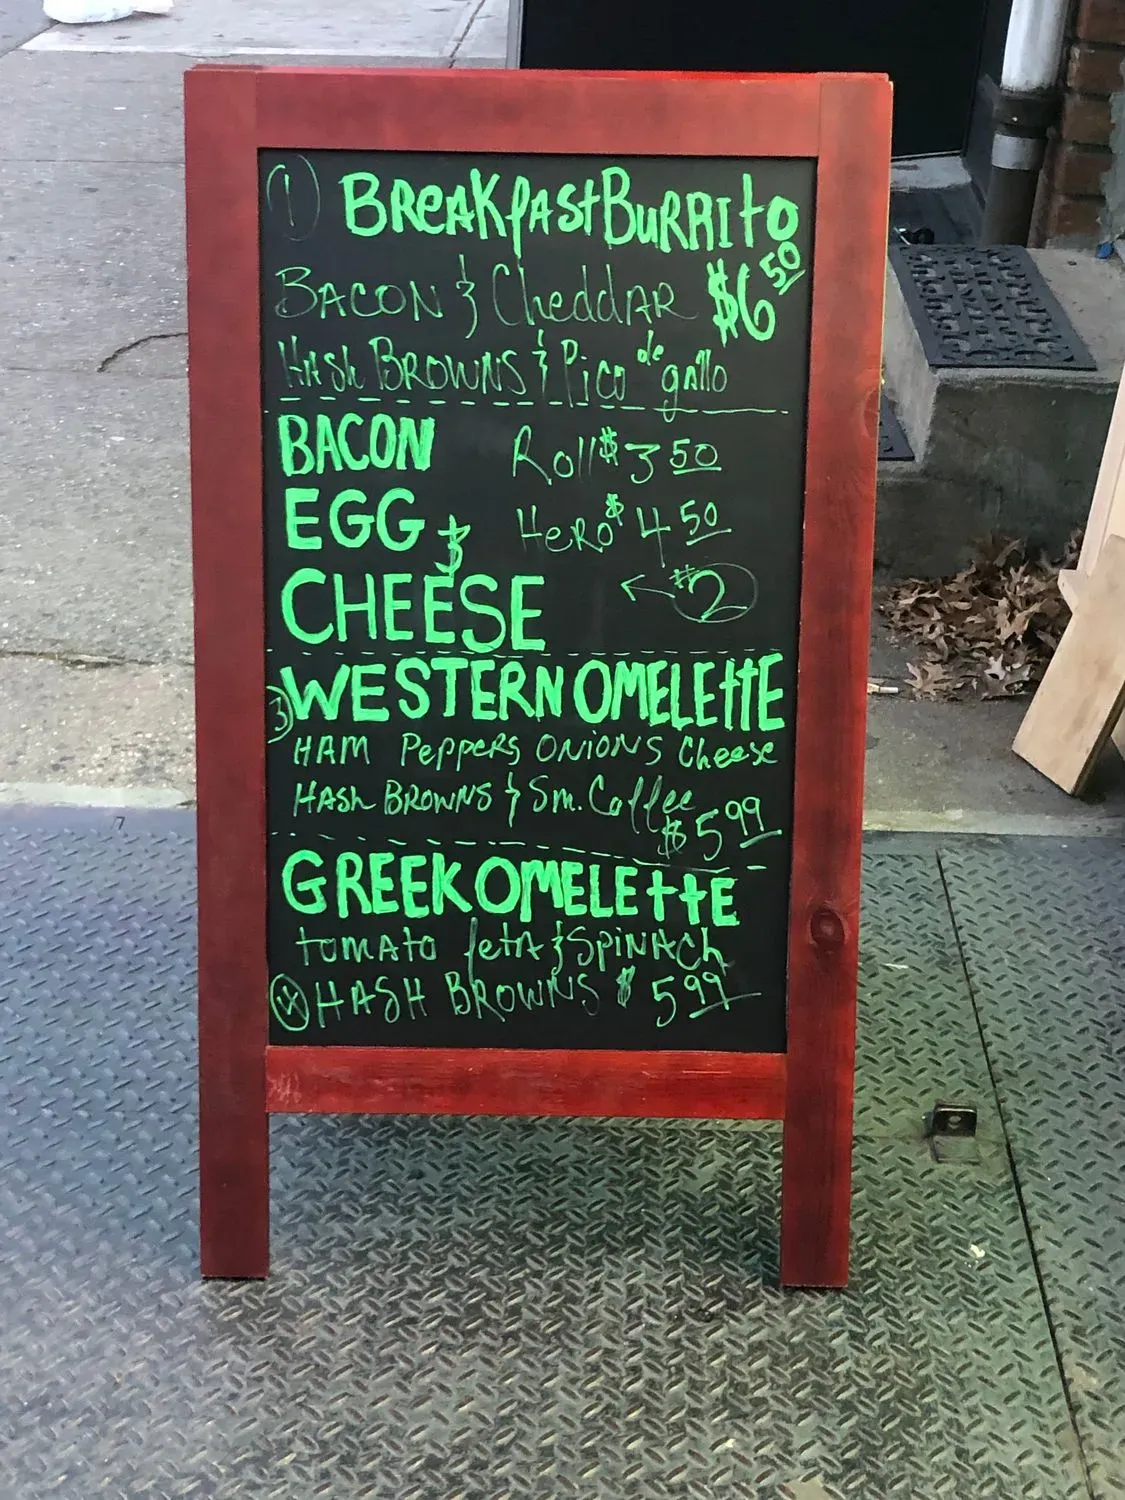 1) BREAKfAST BURRITO
BACON & Cheddar $6 50
HASh BROWNS & Pico de gallo
BACON Roll $3 50
EGG & Hero $4 50
CHEESE ← #2
3) WESTERN OMELETTE
HAM PePPeRS ONIONS Cheese
HASh BROWNS & Sm. Coffee
$5 99
GREEK OMELETTE
TOMATO fetA & SPINACh
4 HASH BROWNS $5 99